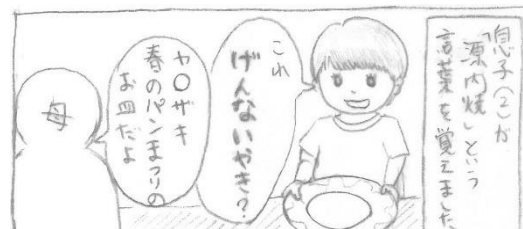 息子(2)が
「源内焼」という
言葉を覚えました。
これ
げんないやき?
ヤ〇ザキ
春のパンまつりの
お皿だよ
母